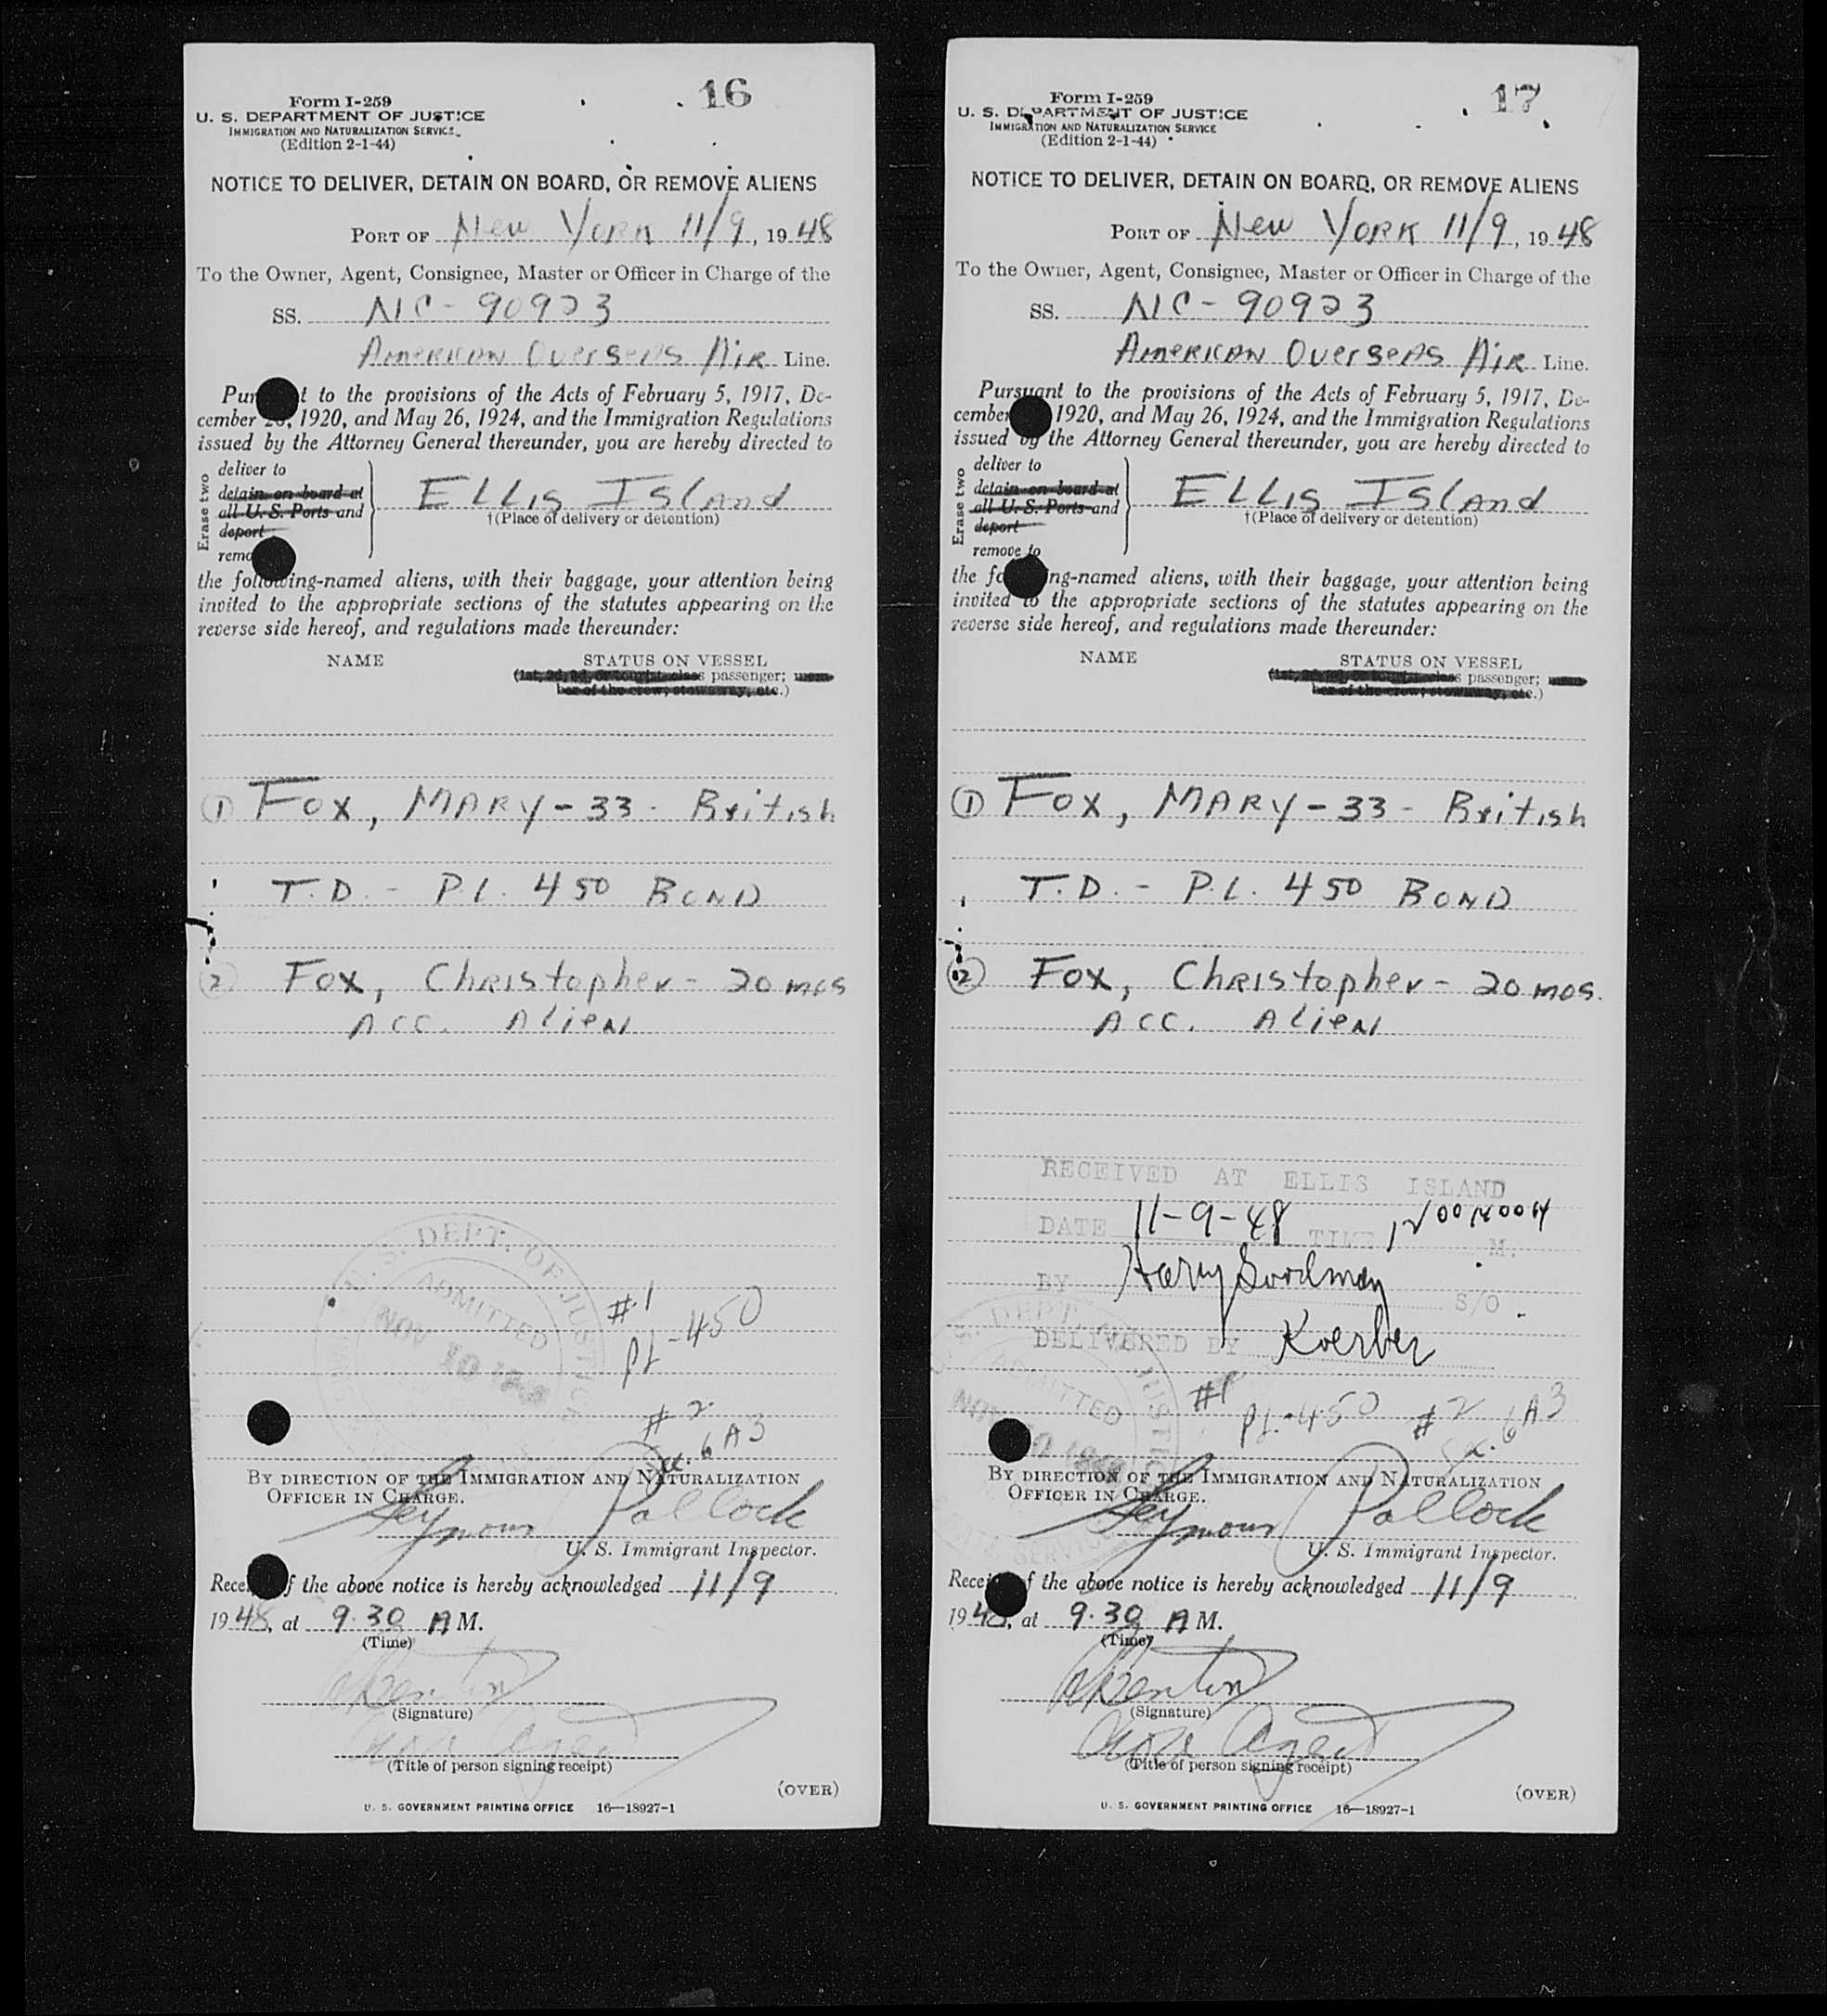 16
Form I-259
U. S. DEPARTMENT OF JUSTICE
IMMIGRATION AND NATURALIZATION SERVICE
(Edition 2-1-44)
NOTICE TO DELIVER, DETAIN ON BOARD, OR REMOVE ALIENS
PORT OF New York 11/9, 1948
To the Owner, Agent, Consignee, Master or Officer in Charge of the
SS. NC-90923
American Overseas Air Line.
Pur t to the provisions of the Acts of February 5, 1917, De-
cember 26, 1920, and May 26, 1924, and the Immigration Regulations
issued by the Attorney General thereunder, you are hereby directed to
Erase two
deliver to
detain on board at
all U. S. Ports and
deport
remo
Ellis Island
†(Place of delivery or detention)
the following-named aliens, with their baggage, your attention being
invited to the appropriate sections of the statutes appearing on the
reverse side hereof, and regulations made thereunder:
NAME STATUS ON VESSEL
(1st, 2d, 3d, or tourist class passenger; mem-
ber of the crew; stowaway, etc.)
① Fox, MARY - 33 - British
T.D. - P.L. 450 BOND
② Fox, Christopher - 20 mos
Acc. Alien
U. S. DEPT. OF JUSTICE
ADMITTED
NOV 10 1948
#1
PL-450
#2
6 A3
BY DIRECTION OF THE IMMIGRATION AND NATURALIZATION
OFFICER IN CHARGE.
Seymour Pollock
U. S. Immigrant Inspector.
Rece f the above notice is hereby acknowledged 11/9
1948, at 9.30 A M.
(Time)
(Signature)
Agent
(Title of person signing receipt)
(OVER)
U. S. GOVERNMENT PRINTING OFFICE 16—18927-1
17
Form I-259
U. S. DEPARTMENT OF JUSTICE
IMMIGRATION AND NATURALIZATION SERVICE
(Edition 2-1-44)
NOTICE TO DELIVER, DETAIN ON BOARD, OR REMOVE ALIENS
PORT OF New York 11/9, 1948
To the Owner, Agent, Consignee, Master or Officer in Charge of the
SS. NC-90923
American Overseas Air Line.
Pursuant to the provisions of the Acts of February 5, 1917, De-
cember 1920, and May 26, 1924, and the Immigration Regulations
issued by the Attorney General thereunder, you are hereby directed to
Erase two
deliver to
detain on board at
all U. S. Ports and
deport
remove to
Ellis Island
†(Place of delivery or detention)
the fo ing-named aliens, with their baggage, your attention being
invited to the appropriate sections of the statutes appearing on the
reverse side hereof, and regulations made thereunder:
NAME STATUS ON VESSEL
(1st, 2d, 3d, or tourist class passenger; mem-
ber of the crew; stowaway, etc.)
① Fox, MARY - 33 - British
T.D. - P.L. 450 BOND
② Fox, Christopher - 20 mos.
Acc. Alien
RECEIVED AT ELLIS ISLAND
DATE 11-9-48 TIME M.
BY Harry Goodman S/O
DELIVERED BY Koerber
U. S. DEPT. OF JUSTICE
ADMITTED
#1 PL-450 #2 6A3
BY DIRECTION OF THE IMMIGRATION AND NATURALIZATION
OFFICER IN CHARGE.
Seymour Pollock
U. S. Immigrant Inspector.
Recei f the above notice is hereby acknowledged 11/9
1948, at 9.30 A M.
(Time)
(Signature)
Agent
(Title of person signing receipt)
(OVER)
U. S. GOVERNMENT PRINTING OFFICE 16—18927-1